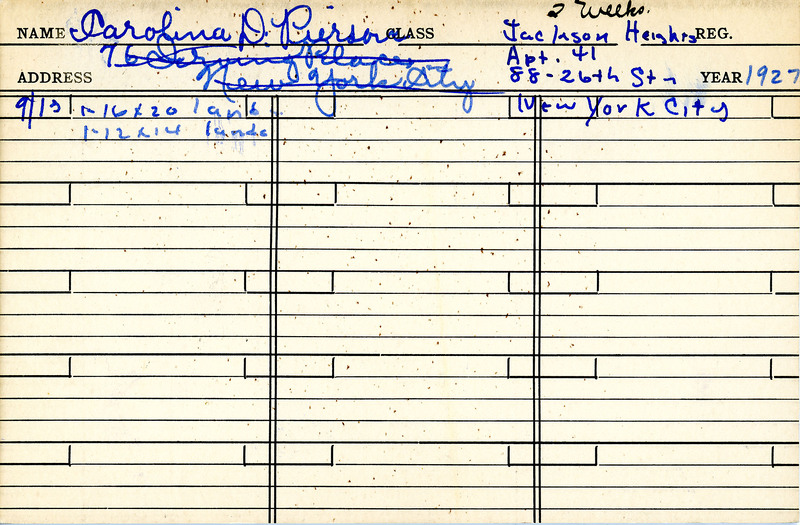 2 Weeks.
NAME Carolina D. Pierson CLASS Jackson Heights REG.
76 Irving Place Apt. 41
ADDRESS New York City 88-26th St. YEAR 1927
9/13 1-16x20 lands. New York City
1-12x14 lands